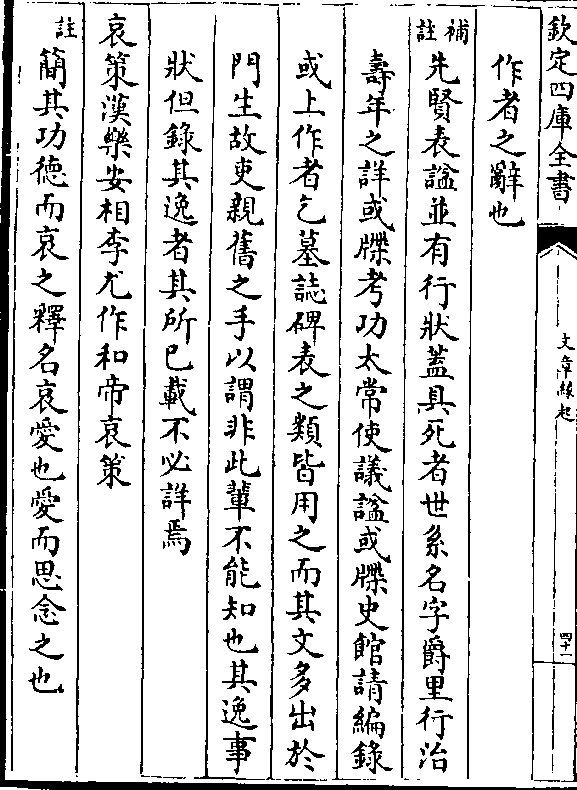 欽定四庫全書
文章緣起
四十一
作者之辭也
補註先賢表諡並有行狀蓋具死者世系名字爵里行治
壽年之詳或牒考功太常使議諡或牒史館請編錄
或上作者乞墓誌碑表之類皆用之而其文多出於
門生故吏親舊之手以謂非此軰不能知也其逸事
狀但錄其逸者其所已載不必詳焉
哀策漢樂安相李尤作和帝哀策
註簡其功德而哀之釋名哀愛也愛而思念之也